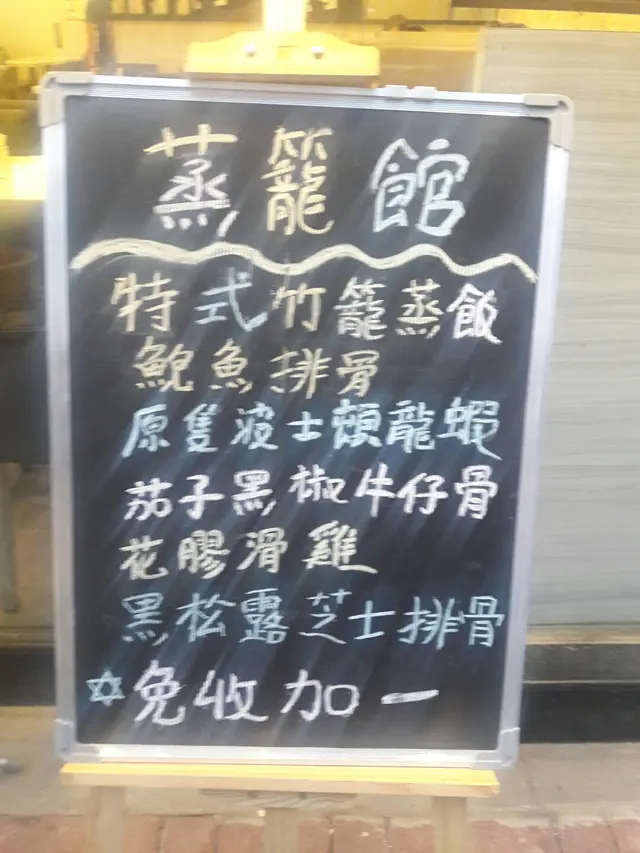 蒸籠館
特式竹籠蒸飯
鮸魚排骨
原隻波士頓龍蝦
茄子黑椒牛仔骨
花膠滑雞
黑松露芝士排骨
✡免收加一